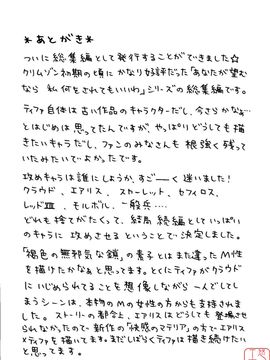 *あとがき*
ついに総集編として発行することができました☆
クリムゾン初期の頃にかなり好評だった「あなたが望む
なら私何をされてもいいわ」シリーズの総集編です。
ティファ自体は古い作品のキャラクターだし、今さらかなぁ…
とはじめは思ってたんですが、やっぱりどうしても描
きたいキャラだし、ファンのみなさんも根強く残っ
ていたみたいでよかったです。
攻めキャラは誰にしようか、すご――く迷いました!
クラウド、エアリス、スカーレット、セフィロス、
レッドⅩⅢ、モルボル、一般兵…
どれも捨てがたくって、結局続編としていっぱい
のキャラに攻めさせるということで決定しました。
「褐色の無邪気な鎖」の素子とはまた違ったM性
を描けたかなぁと思ってます。とくにティファがクラウド
にいじめられてることを想像しながら一人でしてし
まうシーンは、本物のMの女性の方からも支持されま
した。ストーリーの都合上、エアリスはどうしても登場させ
られなかったので、新作の「快感のマテリア」の方でエアリス
×ティファを描いてます。まだしばらくティファは描き続けたい
と思ってます。